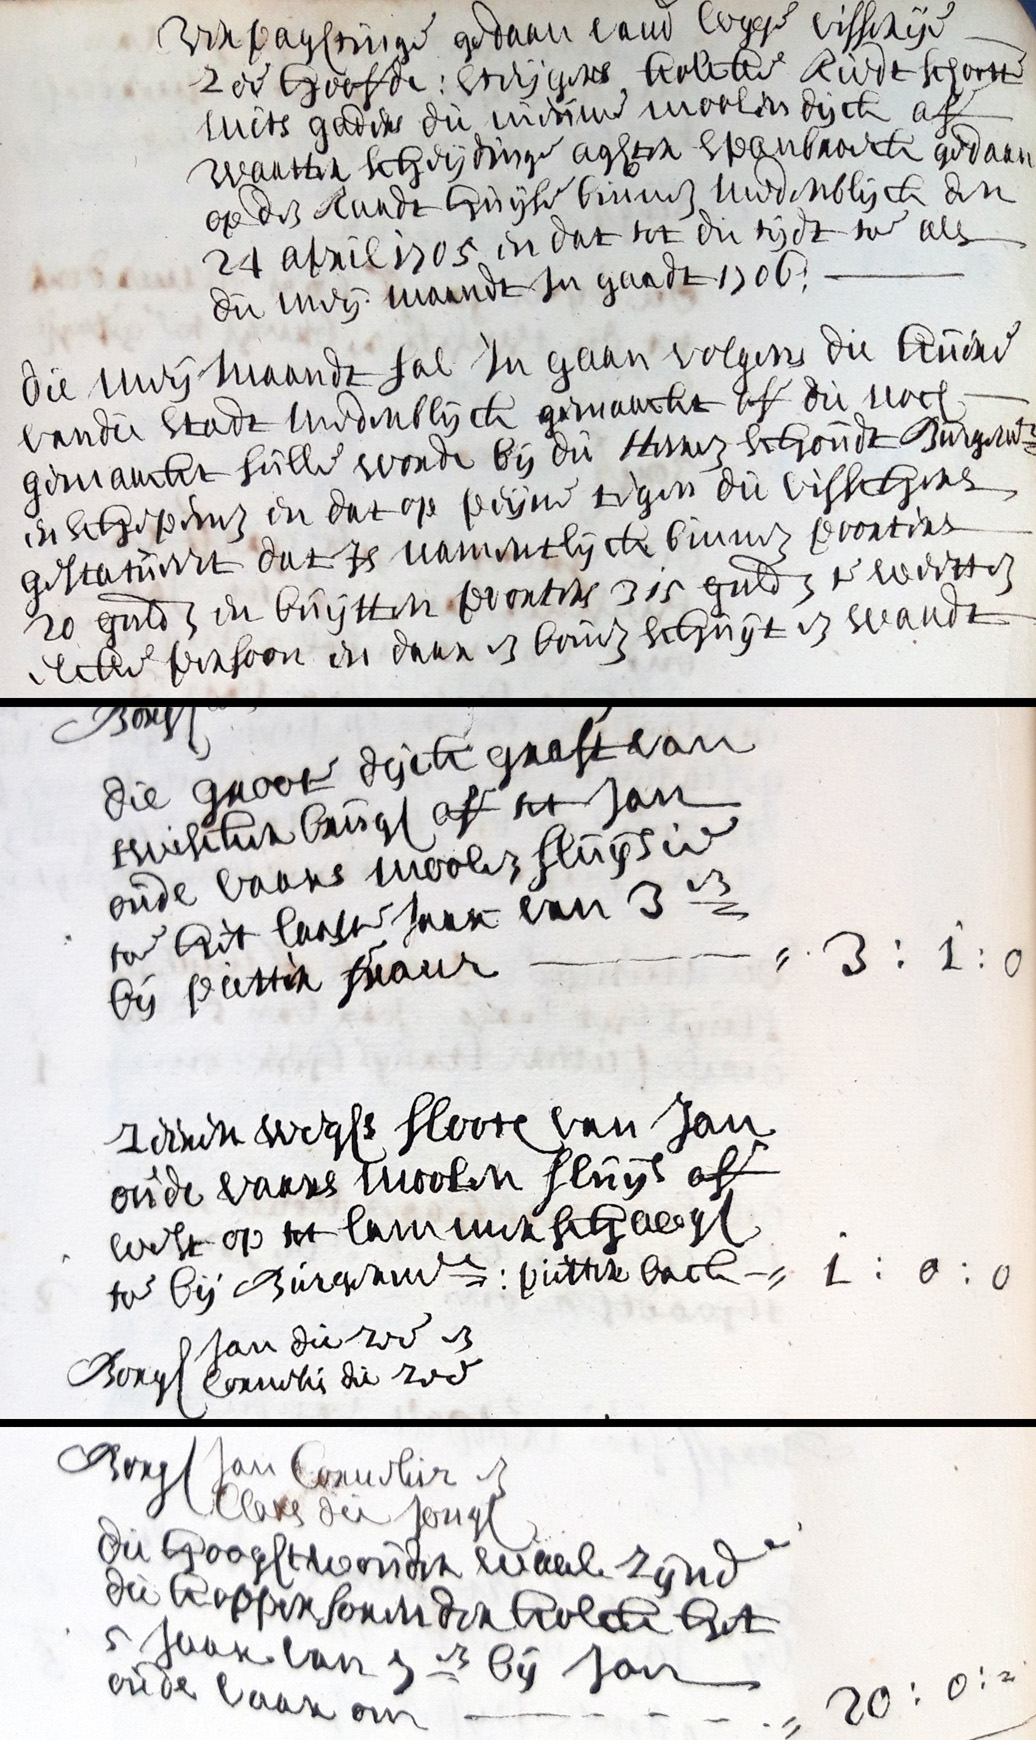 Verpaghtinge gedaan vande leege visserije
zoo hoofde: creijgens kolcke Rietschoott
mits gaders die nieuwe moolen dijck aff
waatter scheijdinge aghter Spanbroeck gedaan
op des Raadt huijse binnen Medenblijck den
24 april 1705 en dat tot die tijdt toe als
die Meij maandt In gaadt 1706:
die Meij Maandt sal In gaan volgens die kuire
van die Stadt Medenblijck gemaeckt off die noch
gemaeckt sulle worde bij die Heeren Schoudt Burgemrs
en schepenen en dat op peijne tegen die visschers
gestatueert dat Is namentlijck binnen poorters
20 guld en buijtten poorters 315 guld te weetten
ijecke persoon en daar en boven schuijt en wandt
Borgh
die groote dijck graft van
twischer brugh aff tot Jan
oude vaars moolen sluijs in
toe het laaste Jaar van 3 en
bij pietter
3 : 1 : 0
wegh sloote van Jan
oude vaars moolen sluijs aff
west op tot lammerschaegh
toe bij Burgerm: : pietter back
1 : 0 : 0
Borgh Jan die zee en
Cornelis die zee
Borgh Jan Cornelisz en
Claes die Jongh
die hooghtwouder waal zijnde
die koppersonder kolck het
5 Jaar van 5 en bij Jan
oude vaar om
20 : 0 :